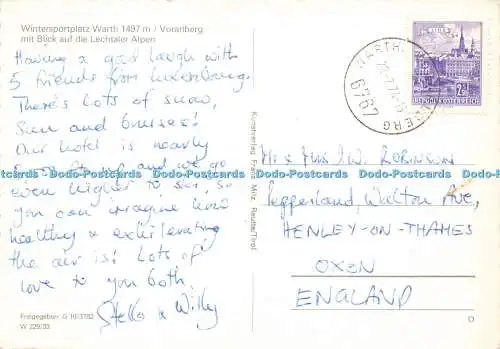 Wintersportplatz Warth 1497 m / Vorarlberg
mit Blick auf die Lechtaler Alpen
Having a good laugh with
5 friends from Luxembourg.
There's lots of snow,
sun and bruises!
Our hotel is nearly
and we go
even higher to ski, so
you can imagine how
healthy & exhilarating
the air is! Lots of
love to you both,
Stella & Willy
Freigegeben G 16/3782
W 229/33
Kunstverlag Franz Milz, Reutte/Tirol
WARTH
6767
2S
REPUBLIK ÖSTERREICH
Mr & Mrs J.W. ROBINSON
Pepperland, Walton Ave,
HENLEY-ON-THAMES
OXON
ENGLAND
O
Dodo-Postcards Dodo-Postcards Dodo-Postcards Dodo-Postcards Dodo-Postcards